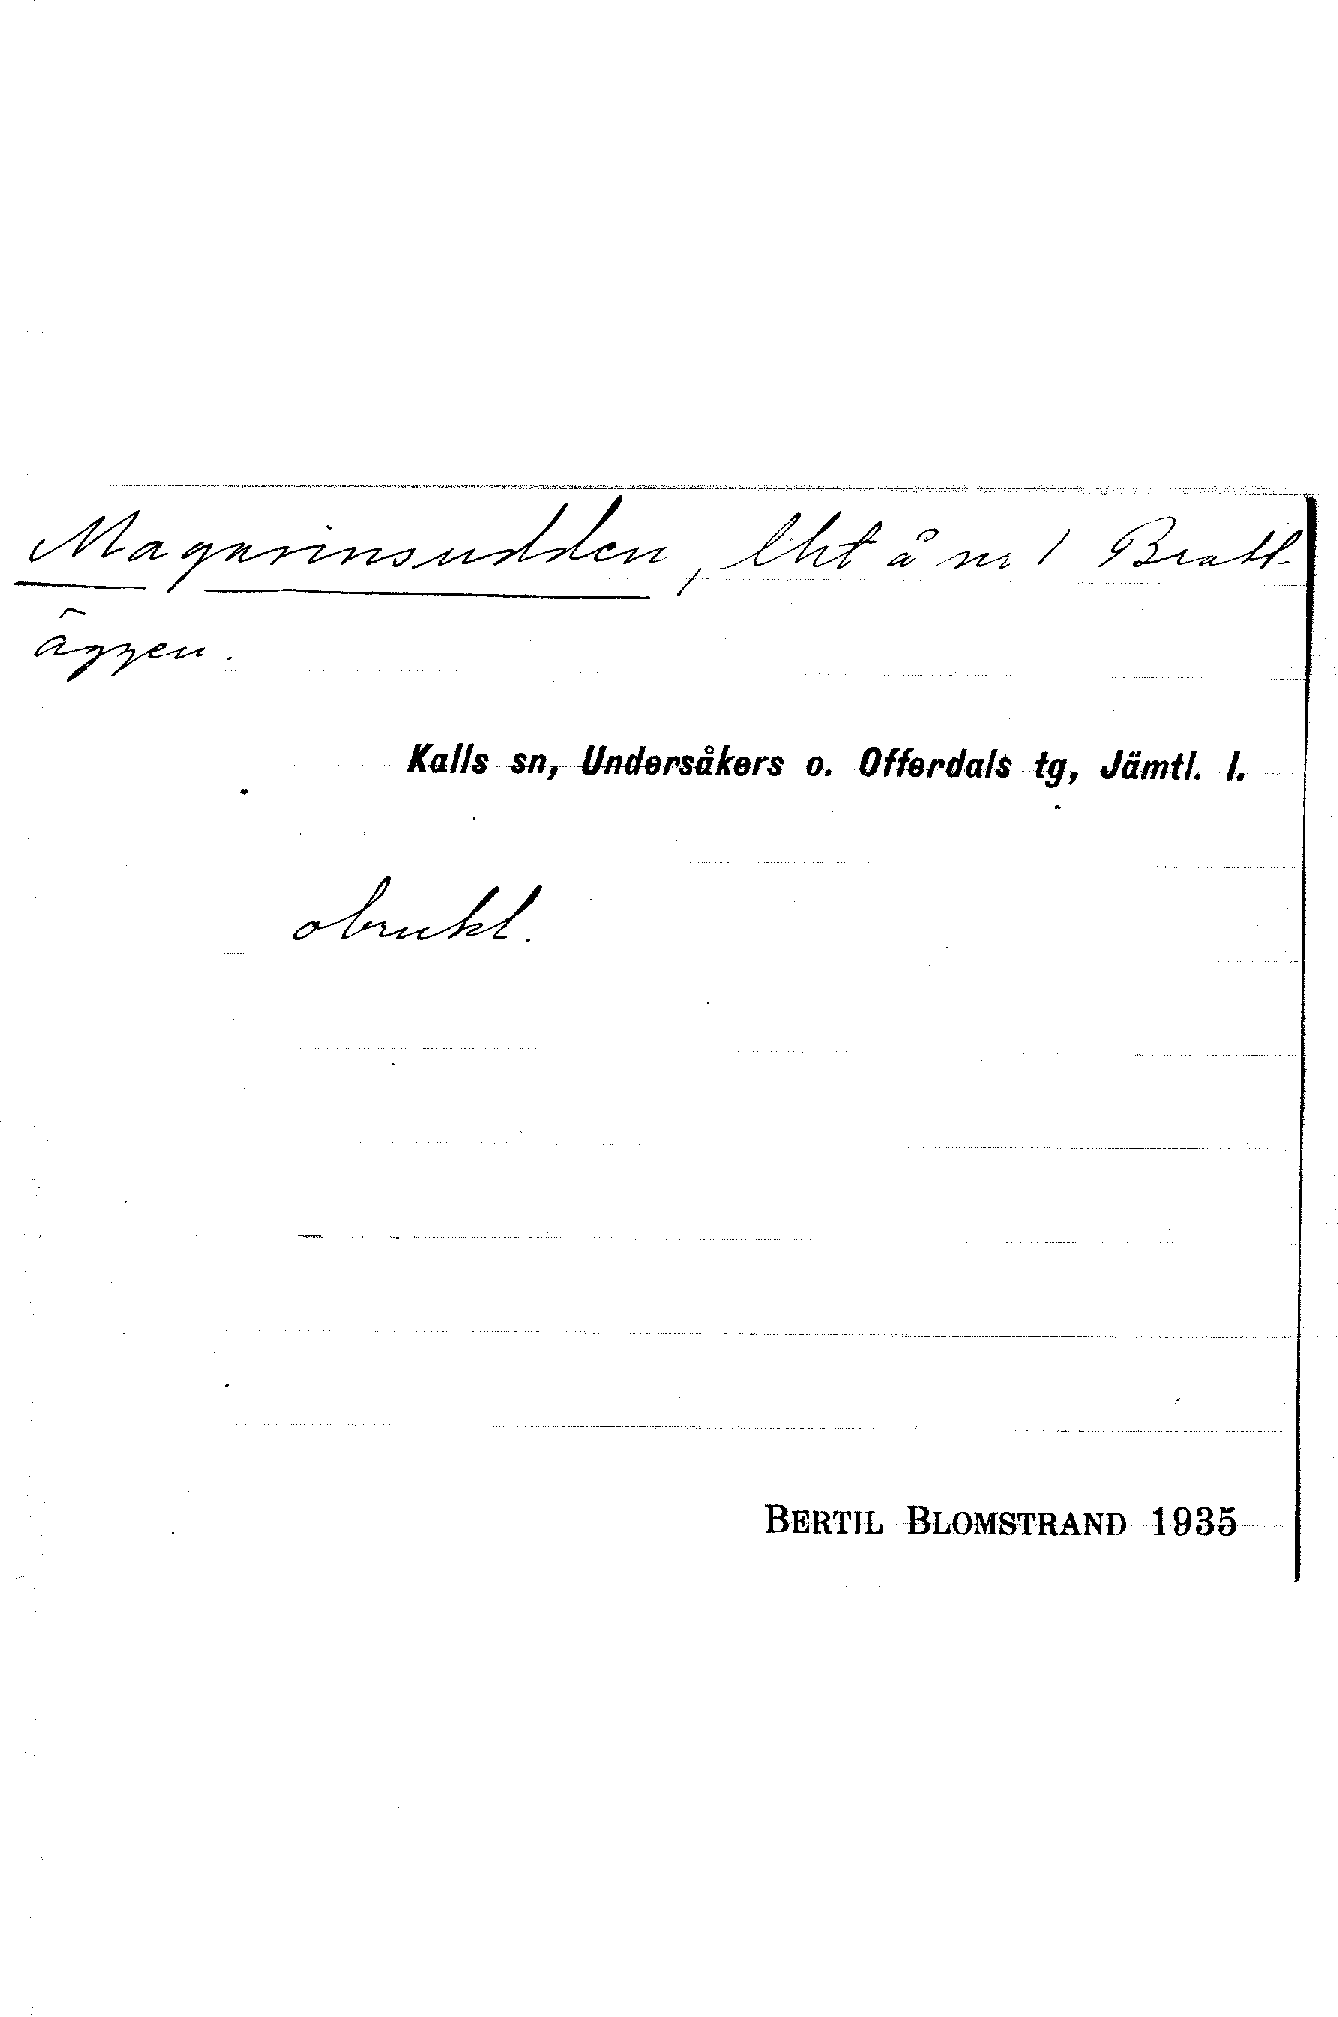 Magasinsudden, lht å nr 1 Bratt-
äggen.
Kalls sn, Undersåkers o. Offerdals tg, Jämtl. l.
obrukl.
BERTIL BLOMSTRAND 1935